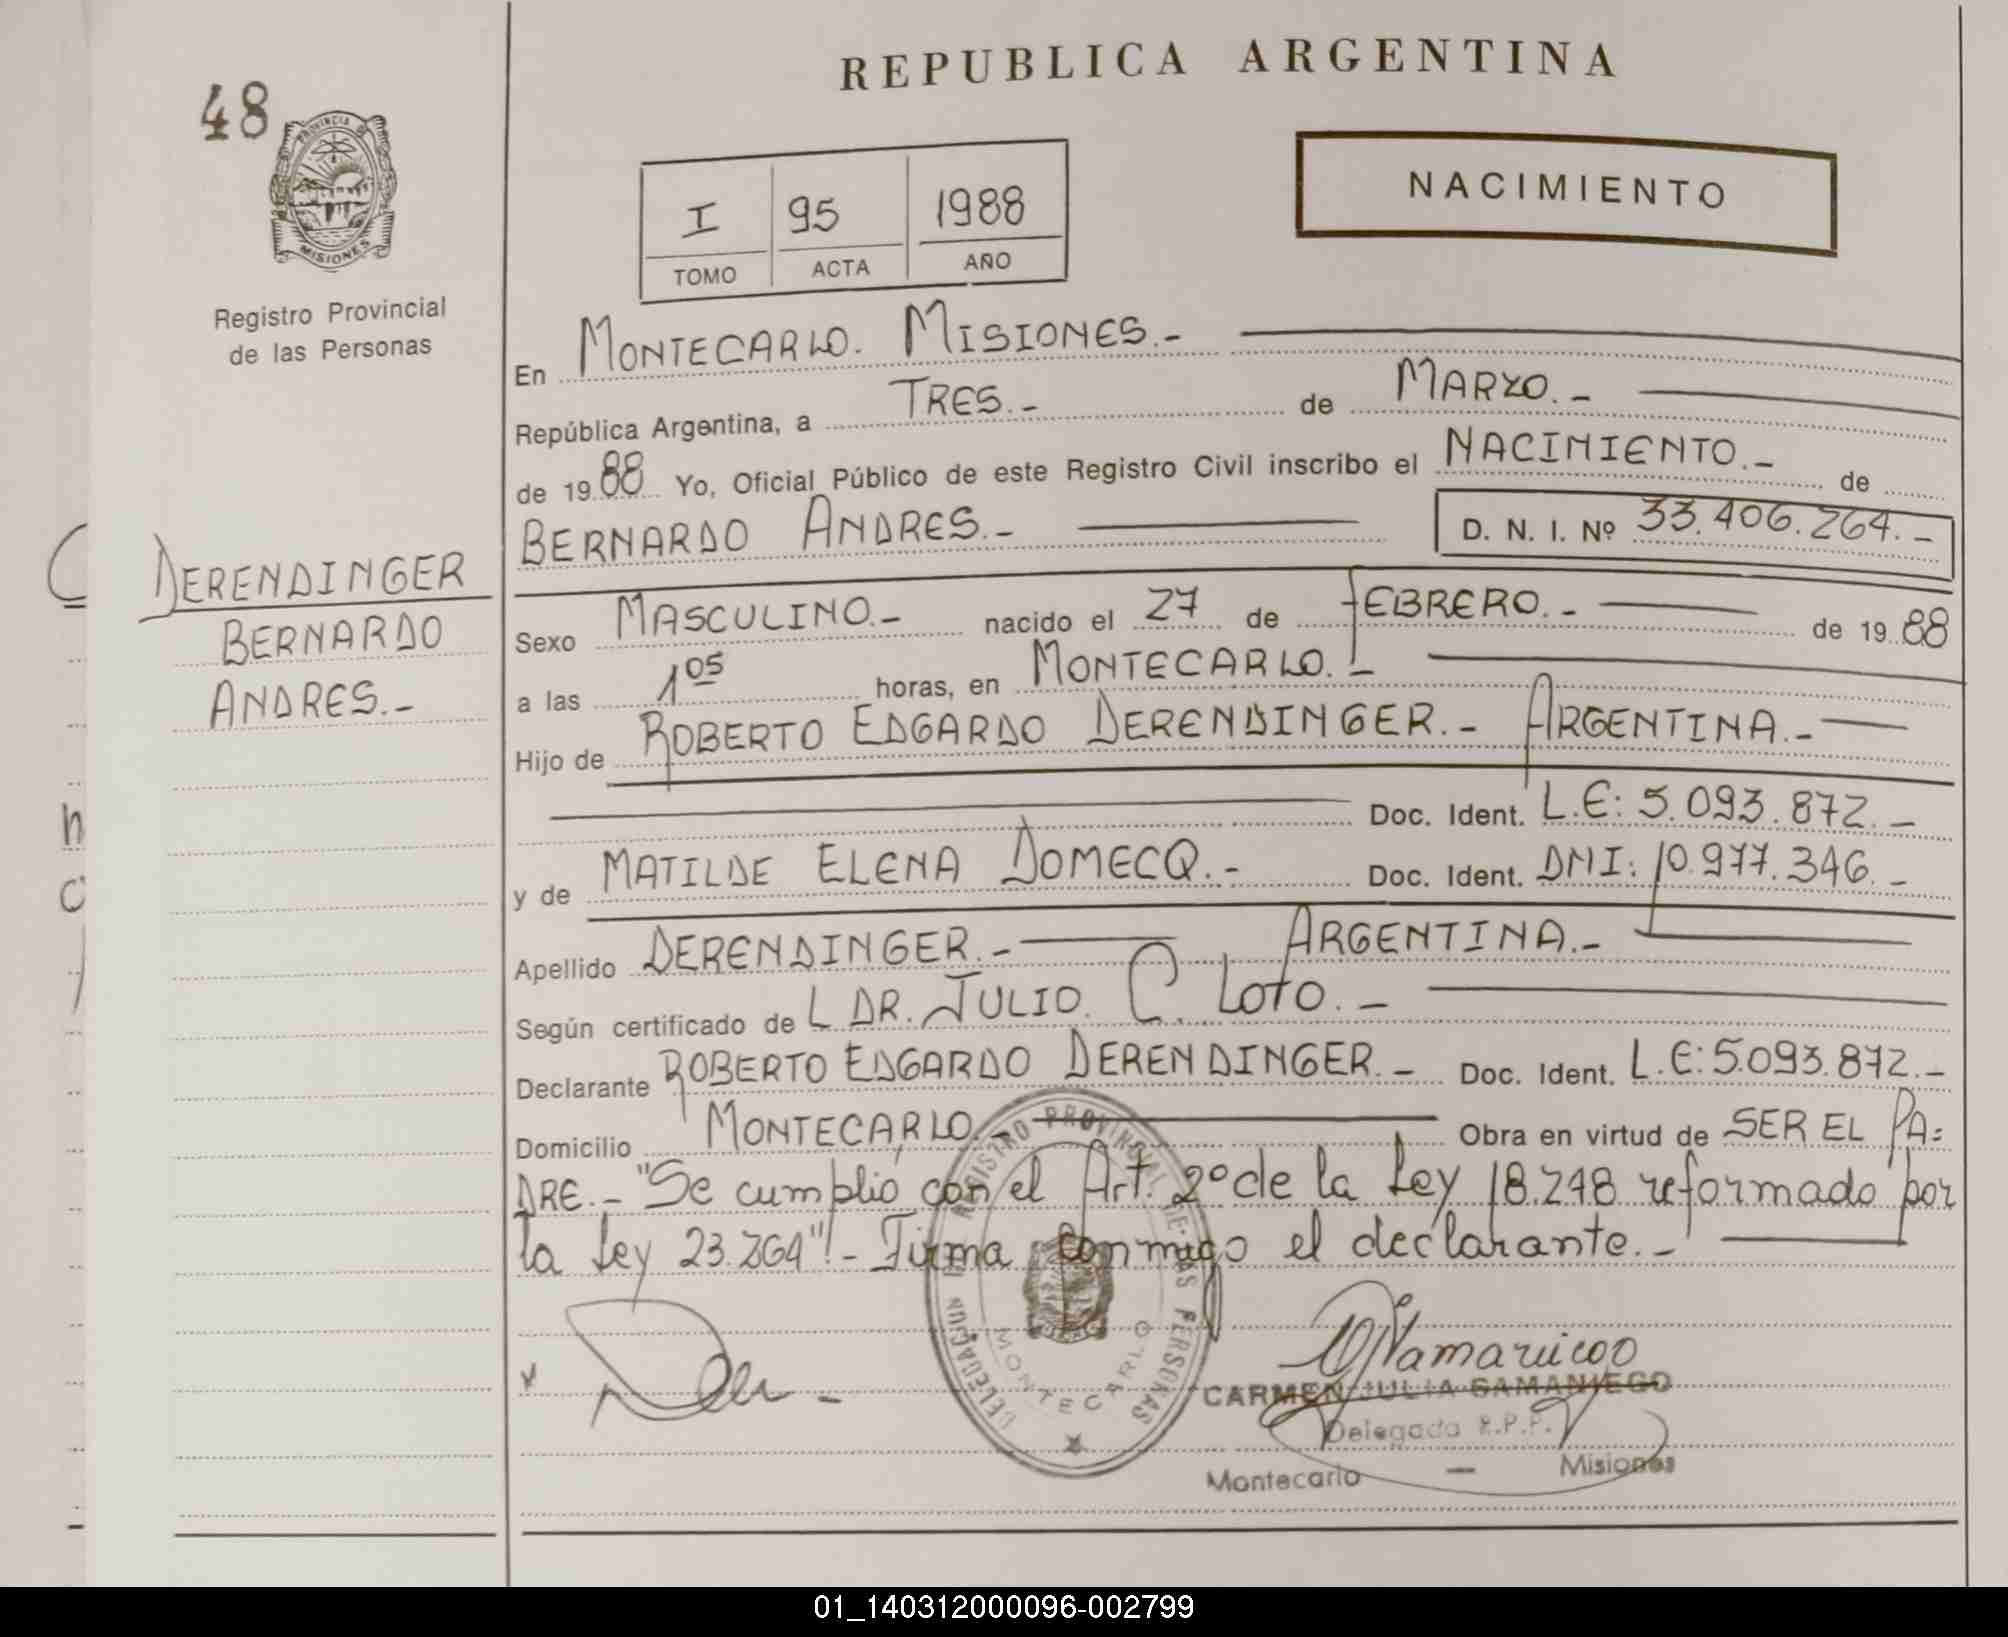 REPUBLICA ARGENTINA
48
PROVINCIA DE
MISIONES
Registro Provincial
de las Personas
NACIMIENTO
I 95 1988
TOMO ACTA AÑO
En MONTECARLO. MISIONES.-
República Argentina, a TRES.- de MARZO.-
de 1988 Yo, Oficial Público de este Registro Civil inscribo el NACIMIENTO.- de
BERNARDO ANDRES.- D. N. I. Nº 33.406.264.-
DERENDINGER
BERNARDO
ANDRES.-
Sexo MASCULINO.- nacido el 27 de FEBRERO.- de 1988
a las 1 05 horas, en MONTECARLO.-
Hijo de ROBERTO EDGARDO DERENDINGER.- ARGENTINA.-
Doc. Ident. L.E: 5.093.872.-
y de MATILDE ELENA DOMECQ.- Doc. Ident. DNI: 10.977.346.-
Apellido DERENDINGER.- ARGENTINA.-
Según certificado de L DR. JULIO. C. LOTO.-
Declarante ROBERTO EDGARDO DERENDINGER.- Doc. Ident. L.E: 5.093.872.-
Domicilio MONTECARLO.- Obra en virtud de SER EL PA=
DRE.- "Se cumplió con el Art. 2º de la Ley 18.248 reformado por
la Ley 23.264"!- Firma conmigo el declarante.-
DELEGACION REGISTRO PROVINCIAL DE LAS PERSONAS
MONTECARLO
CARMEN JULIA SAMANIEGO
Delegada R.P.P.
Montecarlo - Misiones
01_140312000096-002799